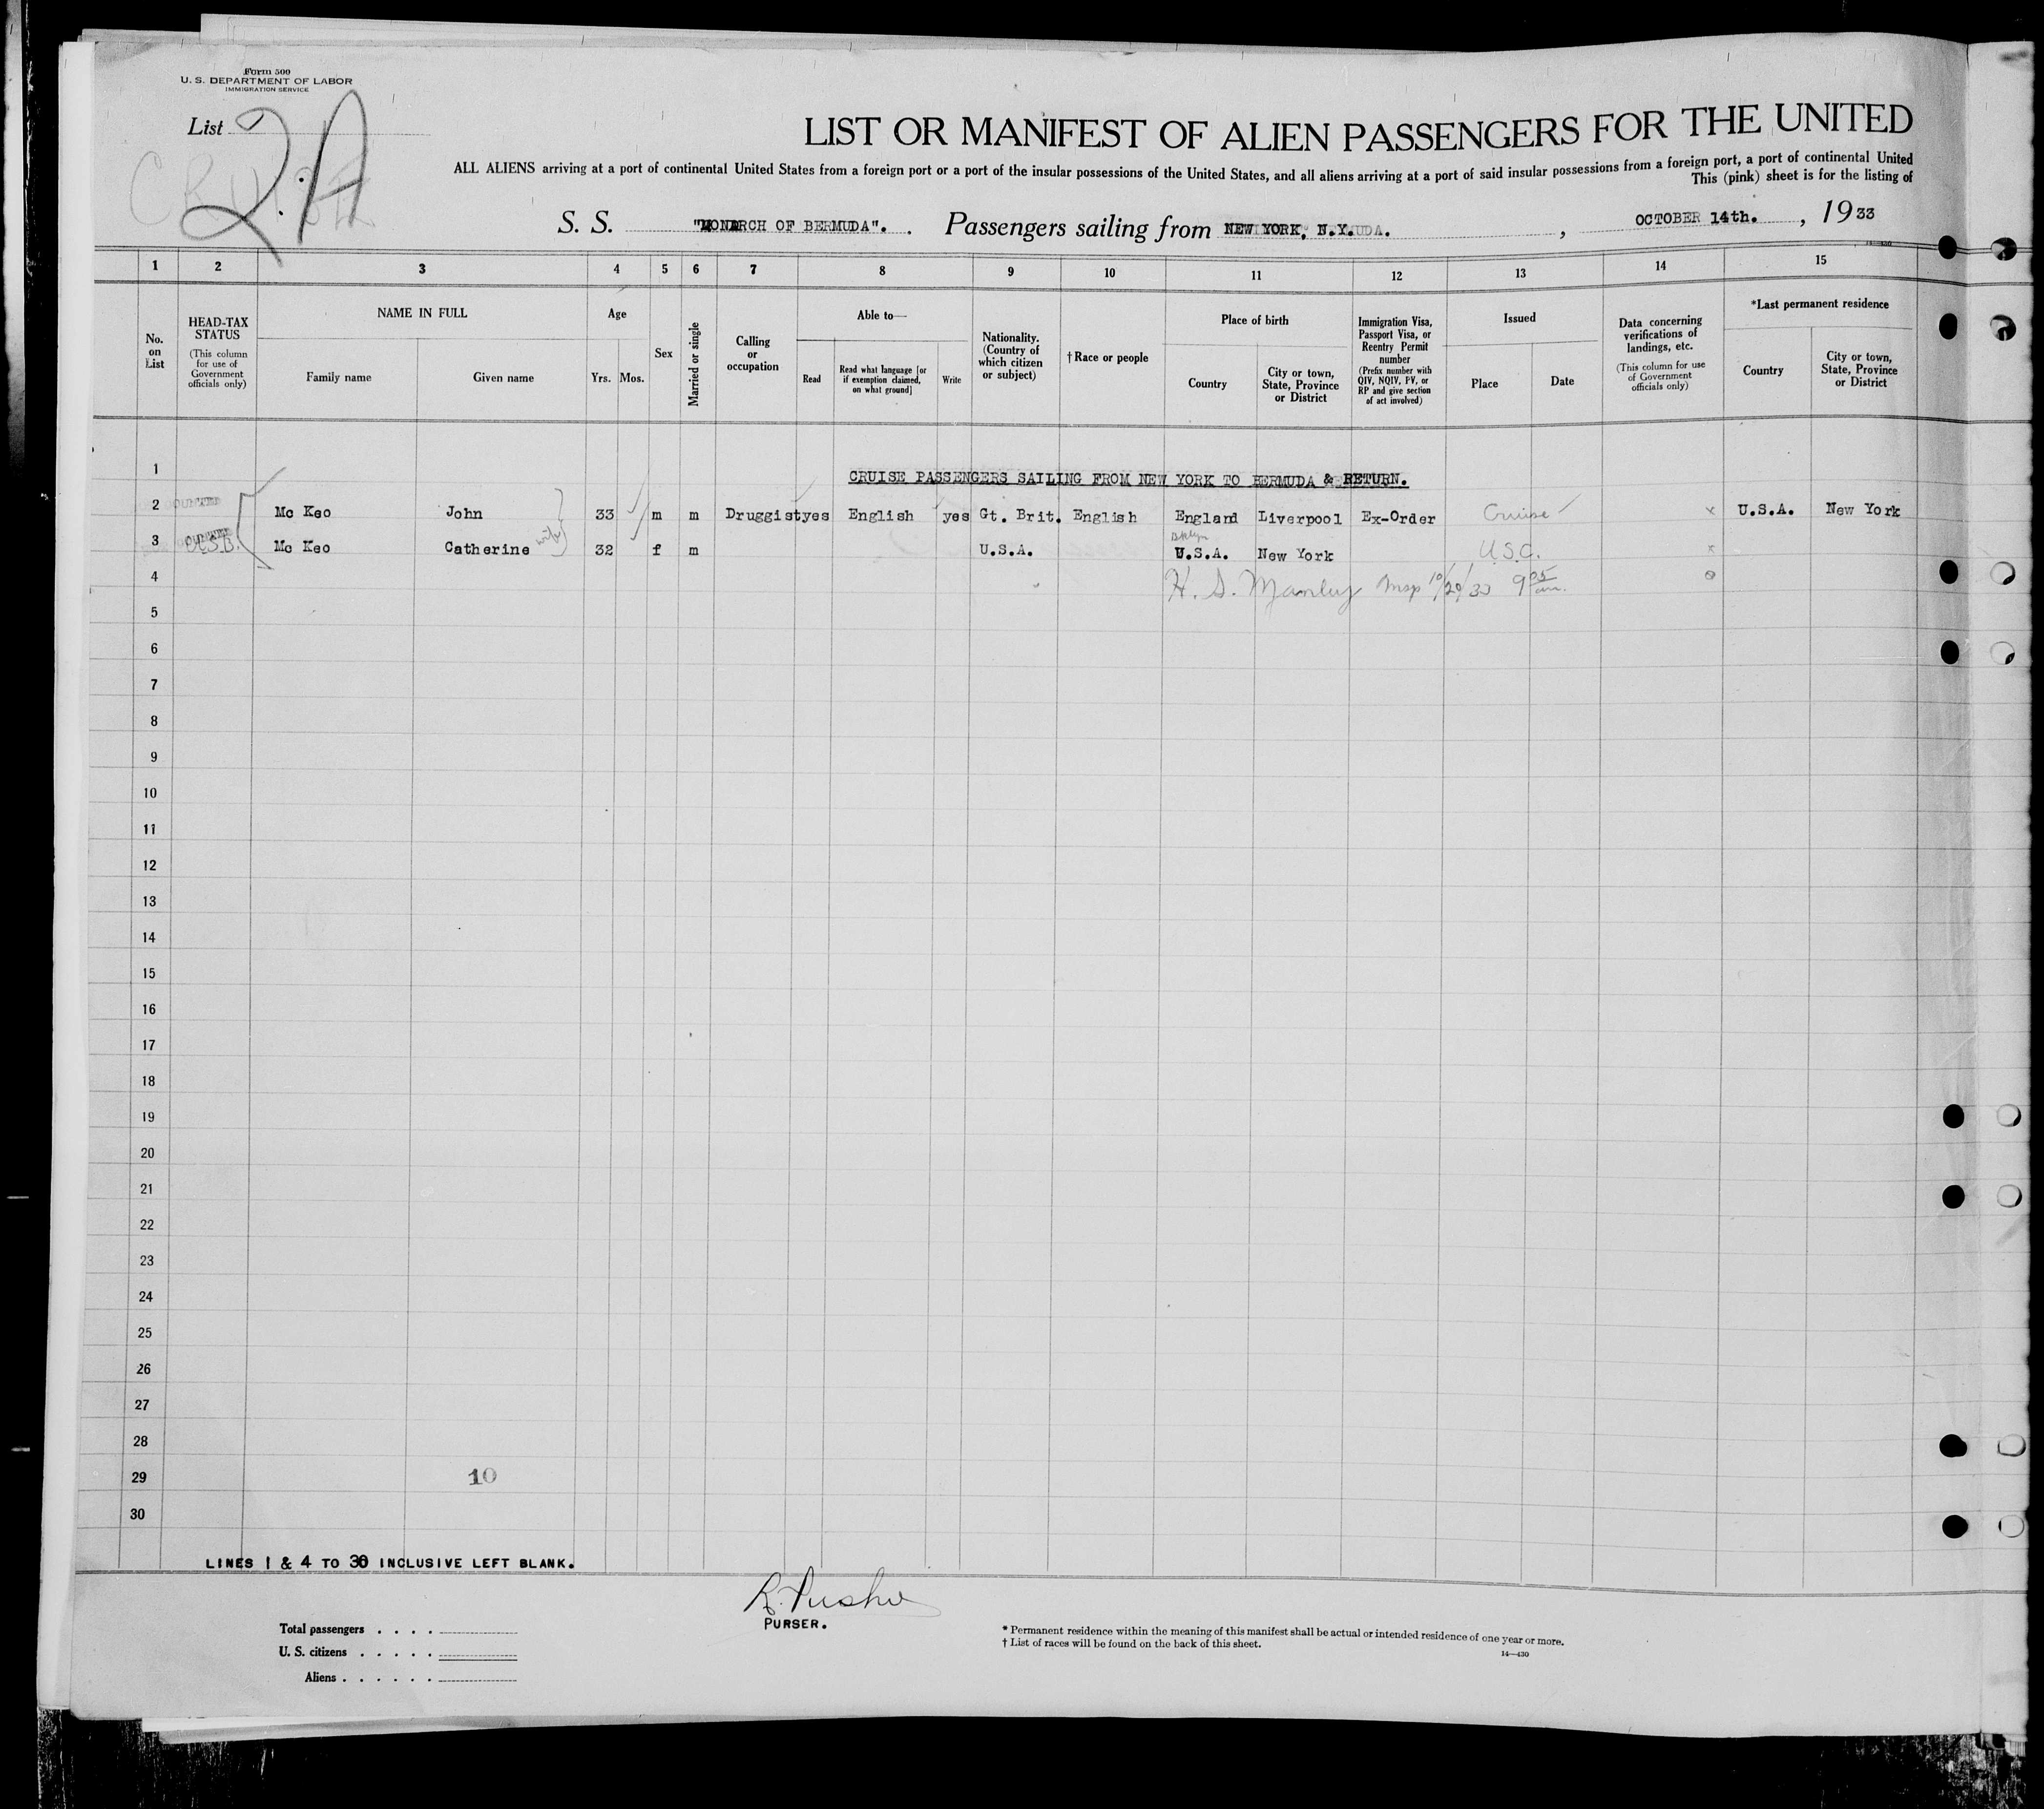 Form 500
U. S. DEPARTMENT OF LABOR
IMMIGRATION SERVICE
List 2A
LIST OR MANIFEST OF ALIEN PASSENGERS FOR THE UNITED
ALL ALIENS arriving at a port of continental United States from a foreign port or a port of the insular possessions of the United States, and all aliens arriving at a port of said insular possessions from a foreign port, a port of continental United
This (pink) sheet is for the listing of
S. S. "MONARCH OF BERMUDA". Passengers sailing from NEW YORK, N.Y. , OCTOBER 14th. , 1933
1 2 3 4 5 6 7 8 9 10 11 12 13 14 15
No. on List
HEAD-TAX STATUS (This column for use of Government officials only)
NAME IN FULL
Family name Given name
Age
Yrs. Mos.
Sex
Married or single
Calling or occupation
Able to—
Read
Read what language [or if exemption claimed, on what ground]
Write
Nationality. (Country of which citizen or subject)
†Race or people
Place of birth
Country
City or town, State, Province or District
Immigration Visa, Passport Visa, or Reentry Permit number (Prefix number with QIV, NQIV, PV, or RP and give section of act involved)
Issued
Place Date
Data concerning verifications of landings, etc. (This column for use of Government officials only)
*Last permanent residence
Country
City or town, State, Province or District
1 CRUISE PASSENGERS SAILING FROM NEW YORK TO BERMUDA & RETURN.
2 Mc Keo John 33 m m Druggist yes English yes Gt. Brit. English England Liverpool Ex-Order Cruise x U.S.A. New York
Bklyn
3 U.S.B. Mc Keo Catherine wife 32 f m U.S.A. U.S.A. New York U.S.C. x
4 H. S. Manley Insp 10/20/33 9 05 am.
5
6
7
8
9
10
11
12
13
14
15
16
17
18
19
20
21
22
23
24
25
26
27
28
29 10
30
LINES 1 & 4 TO 30 INCLUSIVE LEFT BLANK.
PURSER.
Total passengers . . . .
U. S. citizens . . . . .
Aliens . . . . . .
* Permanent residence within the meaning of this manifest shall be actual or intended residence of one year or more.
† List of races will be found on the back of this sheet.
14—430